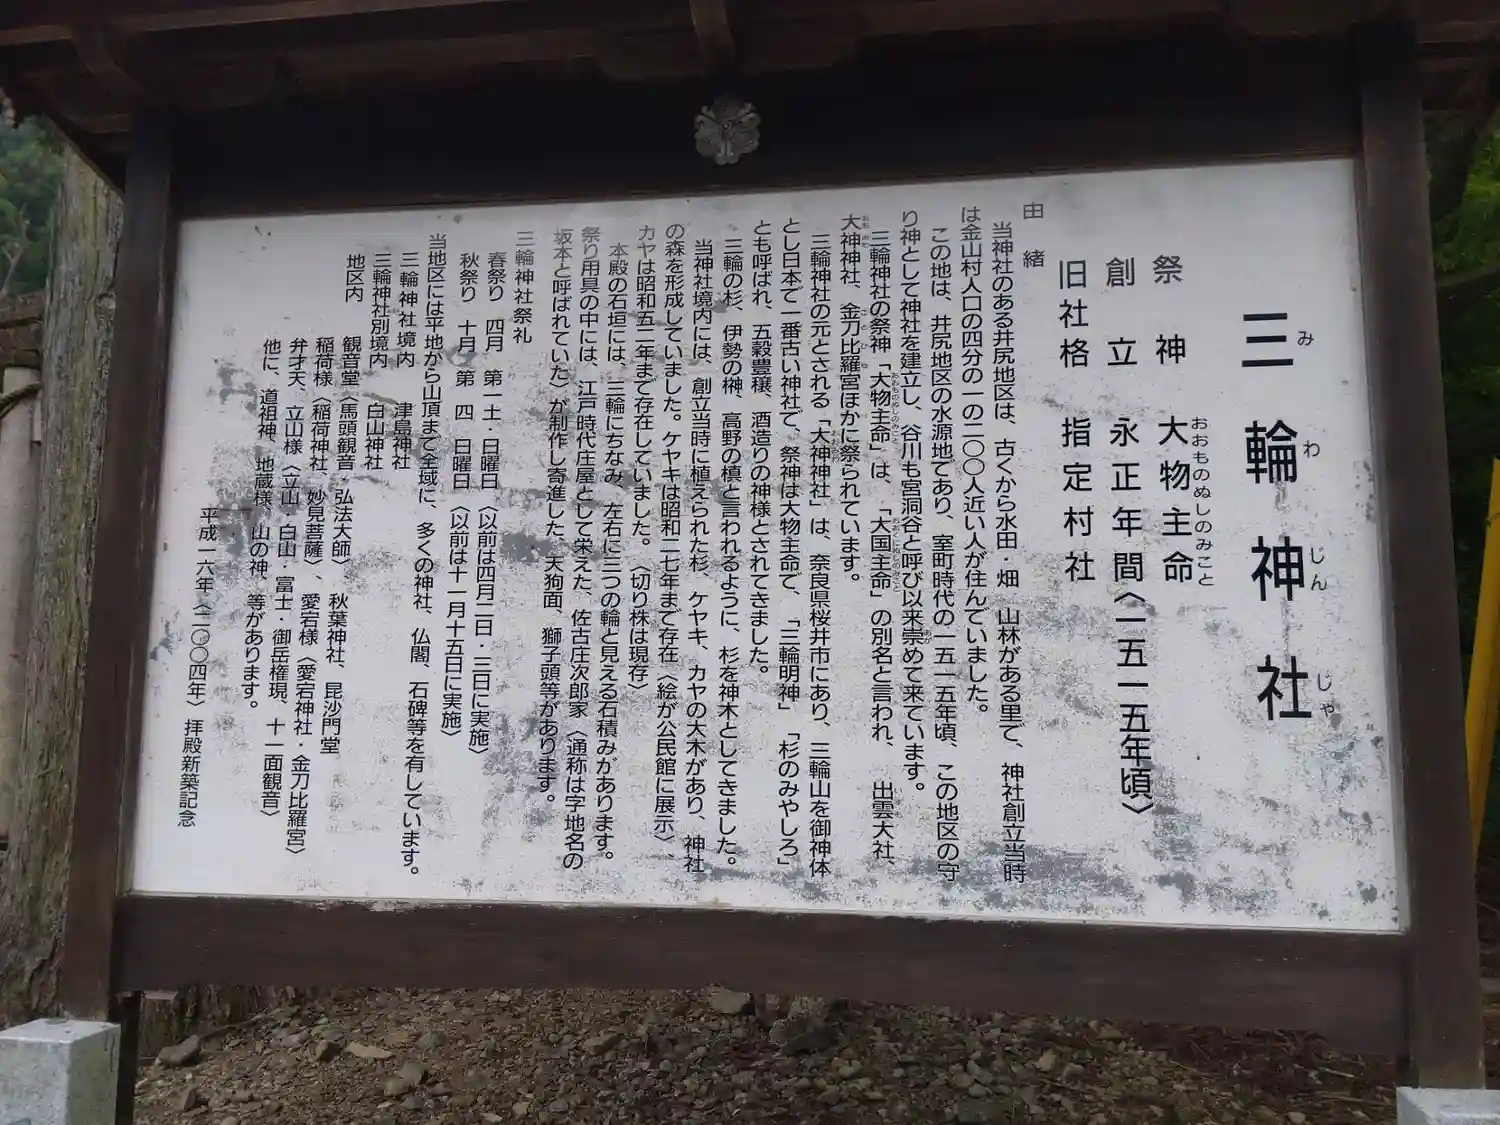 三輪神社
みわじんじゃ
祭神 大物主命
おおものぬしのみこと
創立 永正年間〈一五一五年頃〉
旧社格 指定村社
由緒
当神社のある井尻地区は、古くから水田・畑 山林がある里で、神社創立当時
は金山村人口の四分の一の二〇〇人近い人が住んでいました。
この地は、井尻地区の水源地であり、室町時代の一五一五年頃、この地区の守
り神として神社を建立し、谷川も宮洞谷と呼び以来崇めて来ています。
三輪神社の祭神「大物主命」は、「大国主命」の別名と言われ、 出雲大社、
大神神社、金刀比羅宮ほかに祭られています。
三輪神社の元とされる「大神神社」は、奈良県桜井市にあり、三輪山を御神体
とし日本で一番古い神社で、祭神は大物主命で、「三輪明神」「杉のみやしろ」
とも呼ばれ、五穀豊穣、酒造りの神様とされてきました。
三輪の杉、伊勢の榊、高野の槙と言われるように、杉を神木としてきました。
当神社境内には、創立当時に植えられた杉、ケヤキ、カヤの大木があり、神社
の森を形成していました。ケヤキは昭和二七年まで存在〈絵が公民館に展示〉、
カヤは昭和五二年まで存在していました。〈切り株は現存〉
本殿の石垣には、三輪にちなみ、左右に三つの輪と見える石積みがあります。
祭り用具の中には、江戸時代庄屋として栄えた、佐古庄次郎家〈通称は字地名の
坂本と呼ばれていた〉が制作し寄進した、天狗面、獅子頭等があります。
三輪神社祭礼
春祭り 四月 第一土・日曜日〈以前は四月二日・三日に実施〉
秋祭り 十月 第四 日曜日〈以前は十一月十五日に実施〉
当地区には平地から山頂まで全域に、多くの神社、仏閣、石碑等を有しています。
三輪神社境内 津島神社
三輪神社別境内 白山神社
地区内 観音堂〈馬頭観音・弘法大師〉、秋葉神社、昆沙門堂
稲荷様〈稲荷神社、妙見菩薩〉、愛宕様〈愛宕神社・金刀比羅宮〉
弁才天、立山様〈立山・白山・富士・御岳権現、十一面観音〉
他に、道祖神、地蔵様、山の神、等があります。
平成一六年〈二〇〇四年〉拝殿新築記念